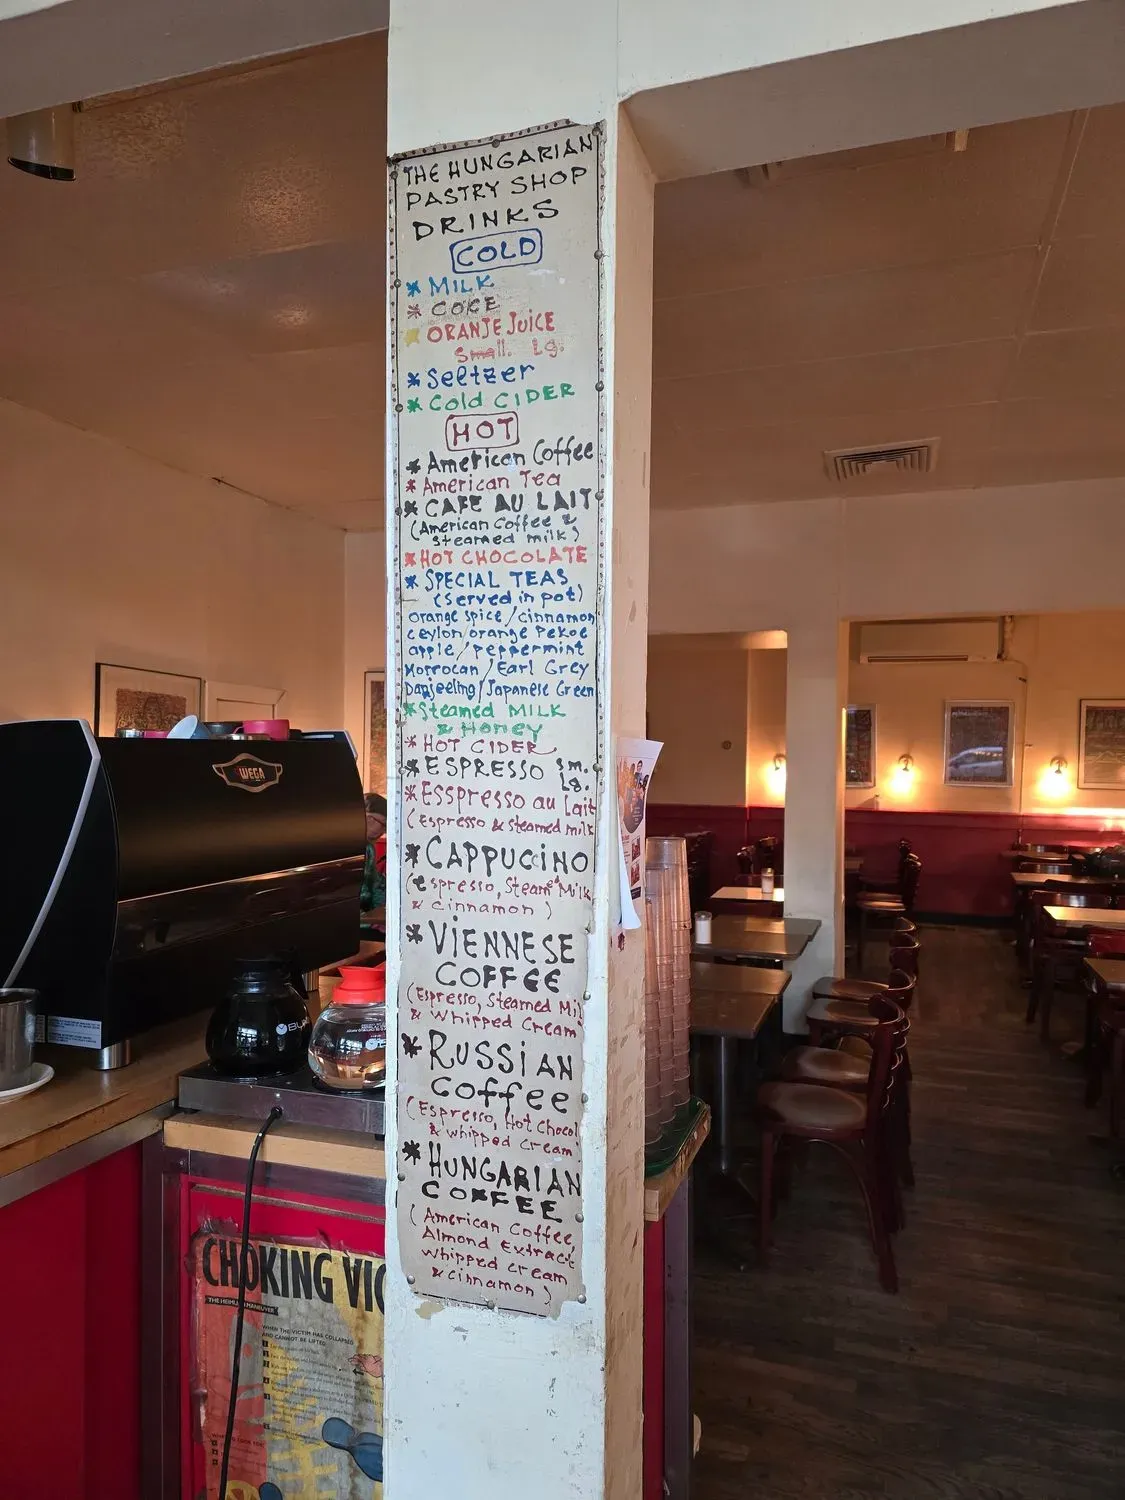 THE HUNGARIAN
PASTRY SHOP
DRINKS
COLD
* MILK
* COKE
* ORANJE JUICE
Small. Lg.
* Seltzer
* Cold CIDER
HOT
* American Coffee
* American Tea
* CAFE AU LAIT
(American Coffee &
Steamed milk)
* HOT CHOCOLATE
* SPECIAL TEAS
(served in pot)
Orange spice/cinnamon
ceylon/orange Pekoe
apple/peppermint
Morrocan/Earl Grey
Darjeeling/Japanese Green
* Steamed MILK
& Honey
* HOT CIDER
* ESPRESSO Sm.
Lg.
* ESSpresso au Lait
(Espresso & steamed milk
* CAPPUCCINO
(espresso, Steam Milk
& cinnamon)
* VIENNESE
COFFEE
(Espresso, Steamed Mil
& Whipped Cream
* RUSSIAN
Coffee
(Espresso, Hot Chocol
& whipped Cream
* HUNGARIAN
COFFEE
(American Coffee,
Almond Extract
whipped cream
& cinnamon)
WEGA
BU
CHOKING VIC
THE HEIMLICH MANEUVER
WHEN THE VICTIM HAS COLLAPSED
AND CANNOT BE LIFTED